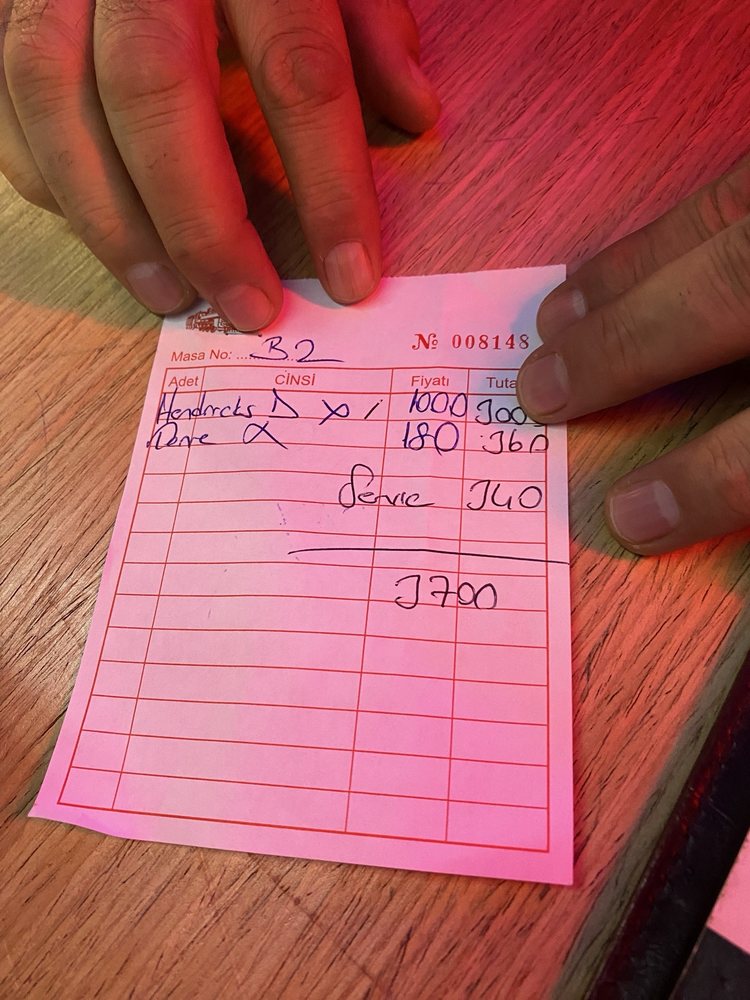 Masa No: .... B.2 № 008148
Adet CİNSİ Fiyatı Tuta
Hendricks D x 1000 300
180 360
Servic 340
3700